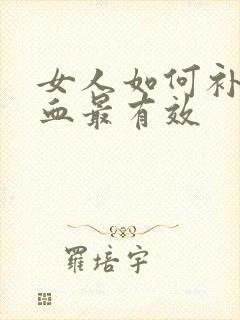 女人如何补
血最有效
羅培宇